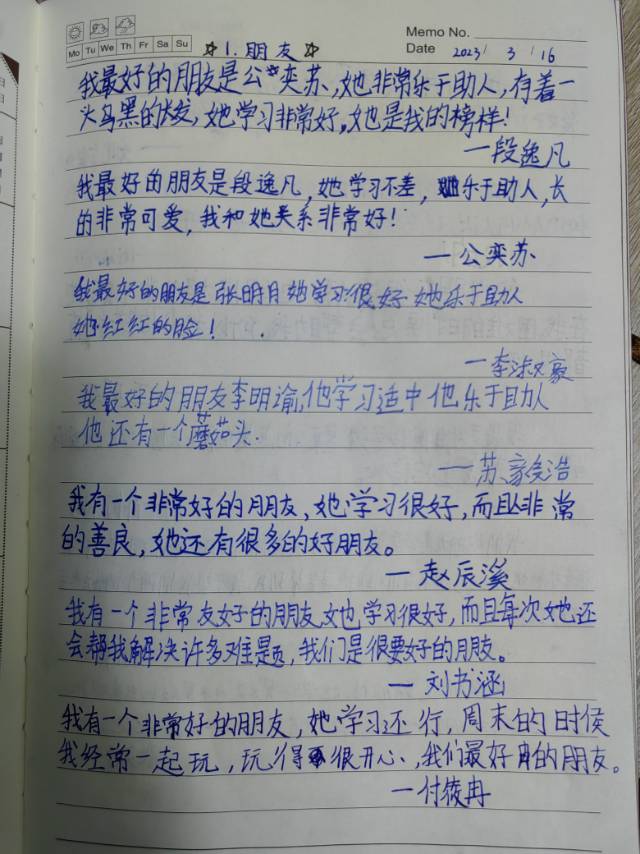 Memo No.
Mo Tu We Th Fr Sa Su
Date 2023 / 3 / 16
☆1.朋友☆
我最好的朋友是公奕苏,她非常乐于助人,存着一
头乌黑的发,她学习非常好,她也是我的榜样!
—段逸凡
我最好的朋友是段逸凡,她学习不差,她乐于助人,长
的非常可爱,我和她关系非常好!
—公奕苏
我最好的朋友是张明月她学习很好她乐于助人
她红红的脸!
—李淑豪
我最好的朋友李明谕,他学习适中他乐于助人
他还有一个蘑茹头.
—苏家浩
我有一个非常好的朋友,她学习很好,而且非常
的善良,她还有很多的好朋友。
—赵辰溪
我有一个非常友好的朋友她学习很好,而且每次她还
会帮我解决许多难题,我们是很要好的朋友。
—刘书涵
我有一个非常好的朋友,她学习还行,周末的时侯
我经常一起玩,玩得很开心,我们最好的朋友。
—付筱冉